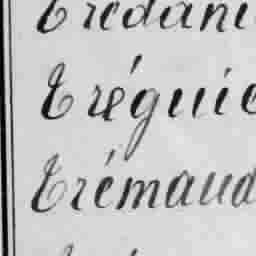 Trédani
Tréguie
Trémaud